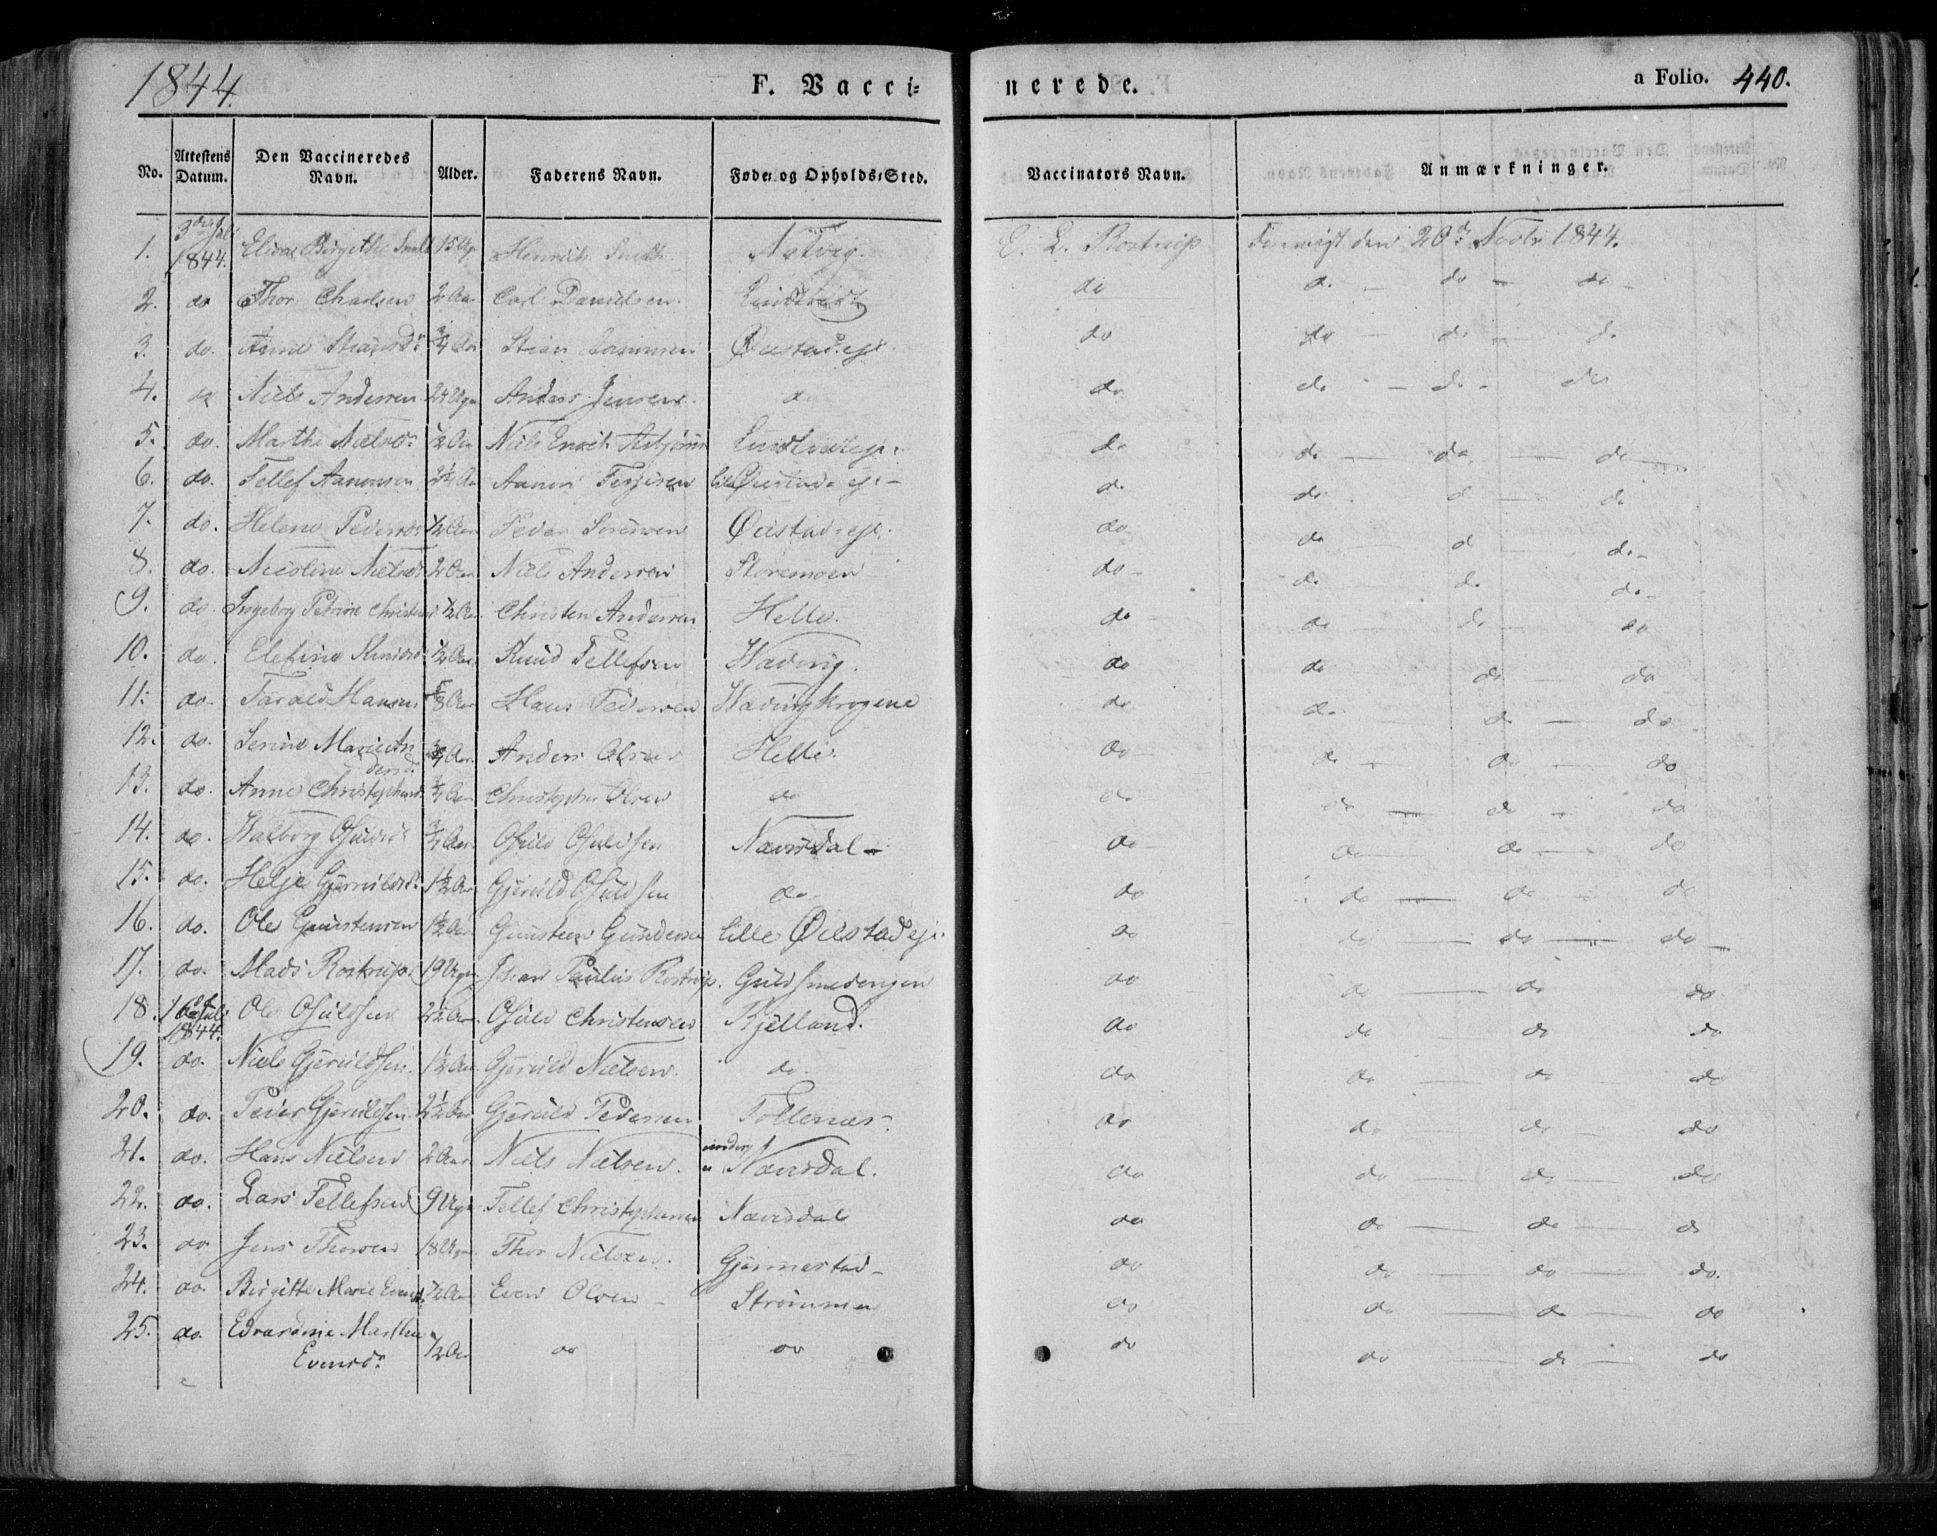 1844.
F. Vacci-
nerede.
a Folio. 440.
No. Attestens Datum. Den Vaccineredes Navn. Alder. Faderens Navn. Føde- og Opholds-Sted. Vaccinators Navn. Anmærkninger.
1. 3die Juli 1844. Birgithe 15 Ugr Natvig. E. L. Rostrup den 20d Novbr 1844.
2. do Thor Charlsen 2 Aar Carl Danielsen. do d. — do — do —
3. do. Anne ¾ Aar Stian Aanonsen Øiestad eje do do — do — do
4. do Niels Andersen 24 Ugr Anders Jensen. d do do — do — do
5. do. Marthe Nielsd. ½ Aar do do — do — do
6. do. Tellef Aanonsen 2¼ Aar Aanon Terjesen Lille Øiestad eje — do do — d — do
7. do. Helene Pedersd ½ Aar Peder Sørensen Øiestad eje. do do — d — do —
8. do. Nicoline Nielsd 2 Aar Niels Andersen Støremoen do — do — do — do —
9. do Ingeborg Petrine Christensd ½ Aar Christen Andersen Helle. do do — do — do
10. do. Elefine Knudsd ½ Aar Knud Tellefsen Wadvig. do do — do — do
11. do. Tarald Hansen ⅝ Aar Hans Pedersen Wadvigkrogene do do — do — do
12. do. Serine Marie An
dersd. ¾ Aar. Anders Olsen Helle. do do — do — do
13. do. Anne Christophersd. ¾ Aar Christopher Olsen do do do — do — do
14. do. Walborg Osuldsd. ¾ Aar Osuld Osuldsen Nævisdal — do do — do — do
15. do. Helje Gjeruldsd. 1½ Aar Gjeruld Osuldsen do — do do — do — do
16. do. Ole Gunstensen 1½ Aar Gunsteen Gundersen Lille Øiestad eje. do do — do — do —
17. do. Mads Rostrup. 19 Ugr. Johan Paulus Rostrup. Guldsmedengen do do — do — do
18. 16de Juli 1844. Ole Osuldsen 2½ Aar. Osuld Christensen Kjelland. do do — do — do
19. do. Niels Gjeruldsen. 1½ Aar Gjeruld Nielsen. do. do do — do — do
20. do. Peder Gjeruldsen. 2½ Aar Gjeruld Pedersen Tollenæs. do do — do — do
21. do. Hans Nielsen 2 Aar Niels Nielsen. Nævisdal. do do — do — do
22. do. Lars Tellefsen 9 Ugr. Tellef Christophersen Nævisdal do do — do — d
23. do Jens Thorsen 18 Ugr. Thor Nielsen. Gjennestad — do do — do — do.
24. do. Birgitte Marie Evensd. ½ Aar Even Olsen — Strømmen do do — do — do
25. do. Edvardine Marthe
Evensd. ½ Aar do do do do — do — do